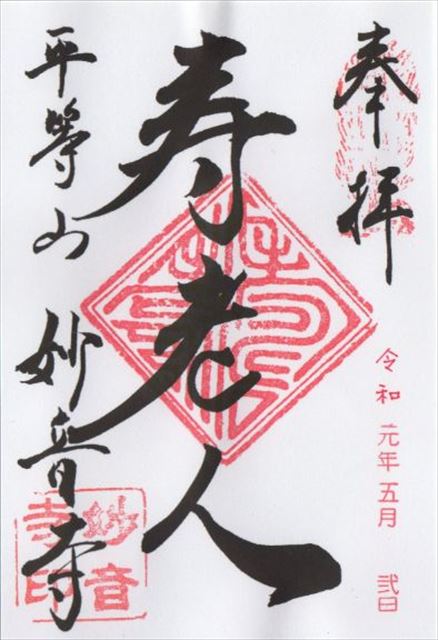 奉拝
令和元年五月弐日
寿老人
平等山妙音寺
妙音
寺印